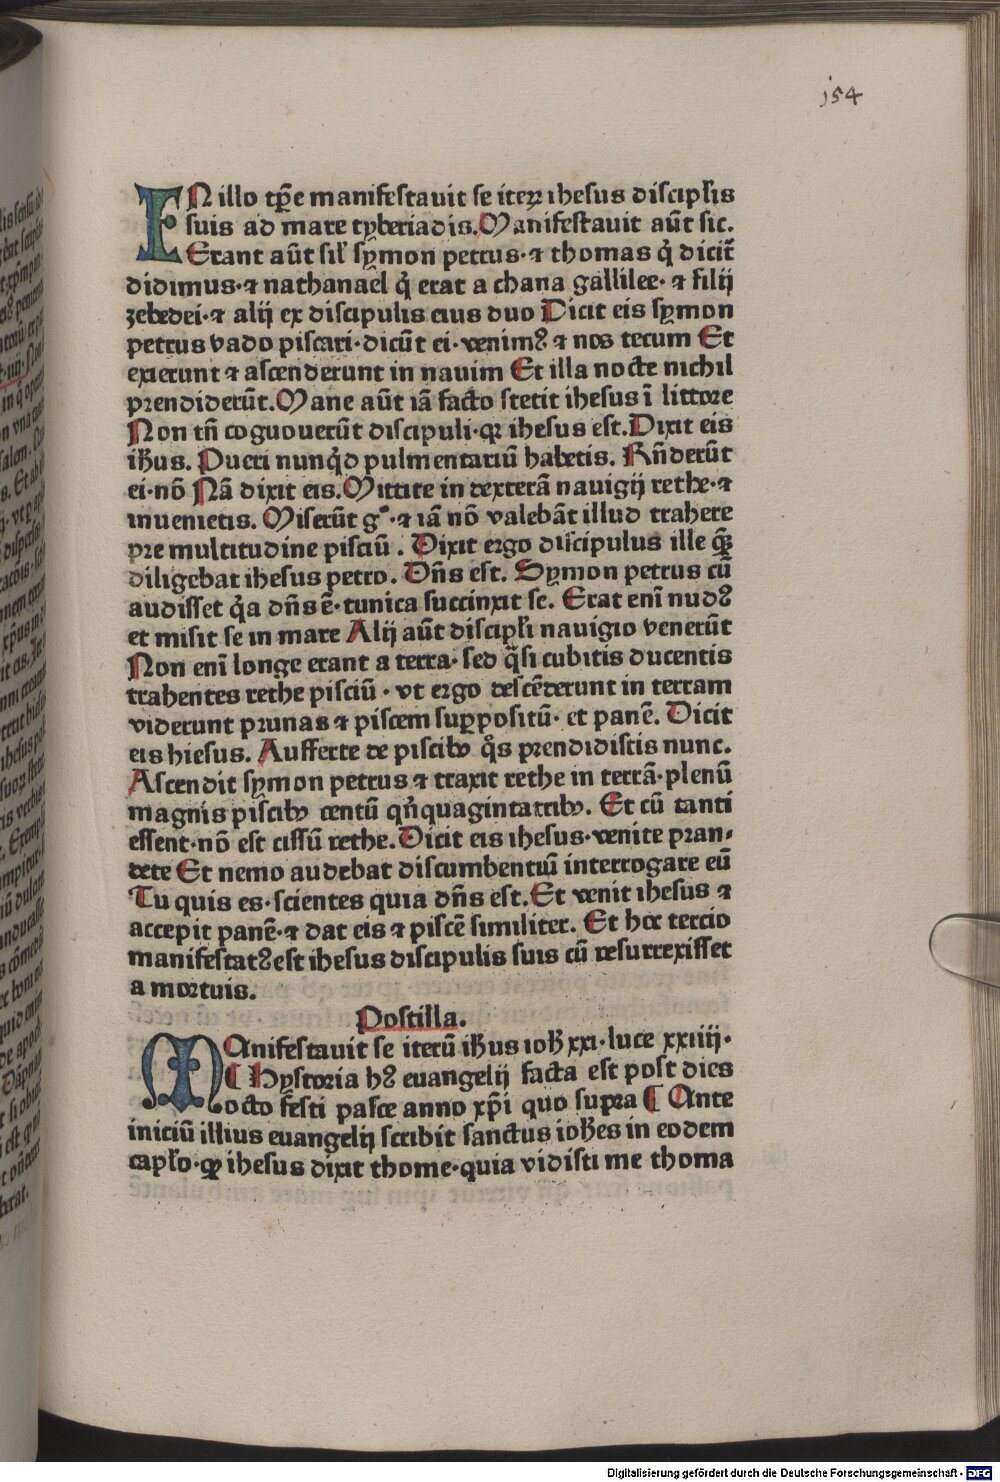 154
EN illo tp̄e manifestavit se iteꝝ ihesus discipl̓is
suis ad mare tyberiadis. Manifestavit aūt sic.
Erant aūt sil̓ symon petrus· ⁊ thomas q̇ dicit̄
didimus· ⁊ nathanael q̇ erat a chana gallilee· ⁊ filij
zebedei· ⁊ alij ex discipulis eius duo Dicit eis symon
petrus vado piscari· dicūt ei· venimꝰ ⁊ nos tecum Et
exierunt ⁊ ascenderunt in nauim Et illa nocte nichil
prendiderūt. Mane aūt iā facto stetit ihesus ī littore
Non tn̄ coguouerūt discipuli· qꝛ ihesus est. Dixit eis
ih̄us. Pueri nunq̇d pulmentariū habetis. Rn̄derūt
ei· nō Nā dixit eis. Mittite in dexterā nauigij rethe· ⁊
inuenietis. Miserūt g°· ⁊ iā nō valebāt illud trahere
pre multitudine pisciū. Dixit ergo discipulus ille quē
diligebat ihesus petro. Dn̄s est. Symon petrus cū
audisset q̇a dn̄s ē· tunica succinxit se. Erat enī nudꝰ
et misit se in mare Alij aūt discipl̓i nauigio venerūt
Non enī longe erant a terra· sed q̄si cubitis ducentis
trahentes rethe pisciū· vt ergo descēderunt in terram
viderunt prunas ⁊ piscem suppositū· et panē. Dicit
eis hiesus. Aufferte de piscibꝰ q̊s prendidistis nunc.
Ascendit symon petrus ⁊ traxit rethe in terrā· plenū
magnis piscibꝰ centū qn̄quagintatribꝰ. Et cū tanti
essent· nō est cissū rethe. Dicit eis ihesus· venite pran-
dete Et nemo audebat discumbentiū interrogare eū
Tu quis es· scientes quia dn̄s est. Et venit ihesus ⁊
accepit panē· ⁊ dat eis ⁊ piscē similiter. Et hoc tercio
manifestatꝰ est ihesus discipulis suis cū resurrexisset
a mortuis.
Postilla.
MAnifestavit se iterū ih̄us ioh̄ xxi· luce xxiiij·
¶ Hystoria hꝰ euangelij facta est post dies
octo festi pasce anno xp̄i quo supra ¶ Ante
iniciū illius euangelij scribit sanctus ioh̄es in eodem
capl̓o· qꝫ ihesus dixit thome· quia vidisti me thoma
Digitalisierung gefördert durch die Deutsche Forschungsgemeinschaft - DFG